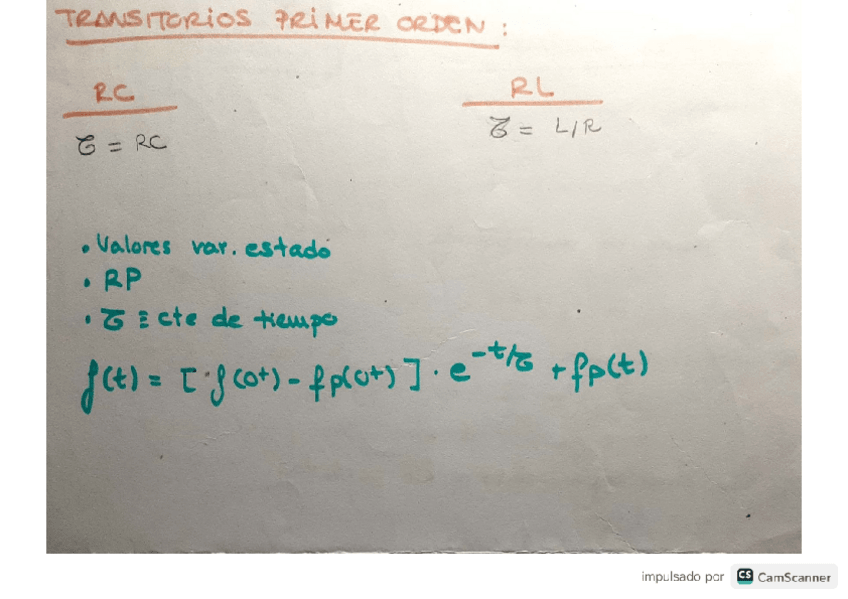 TRANSITORIOS PRIMER ORDEN :
RC
RL
τ = RC
τ = L/R
• Valores var. estado
• RP
• τ ≡ cte de tiempo
f(t) = [ f(0+) - fp(0+) ] · e^-t/τ + fp(t)
impulsado por CS CamScanner